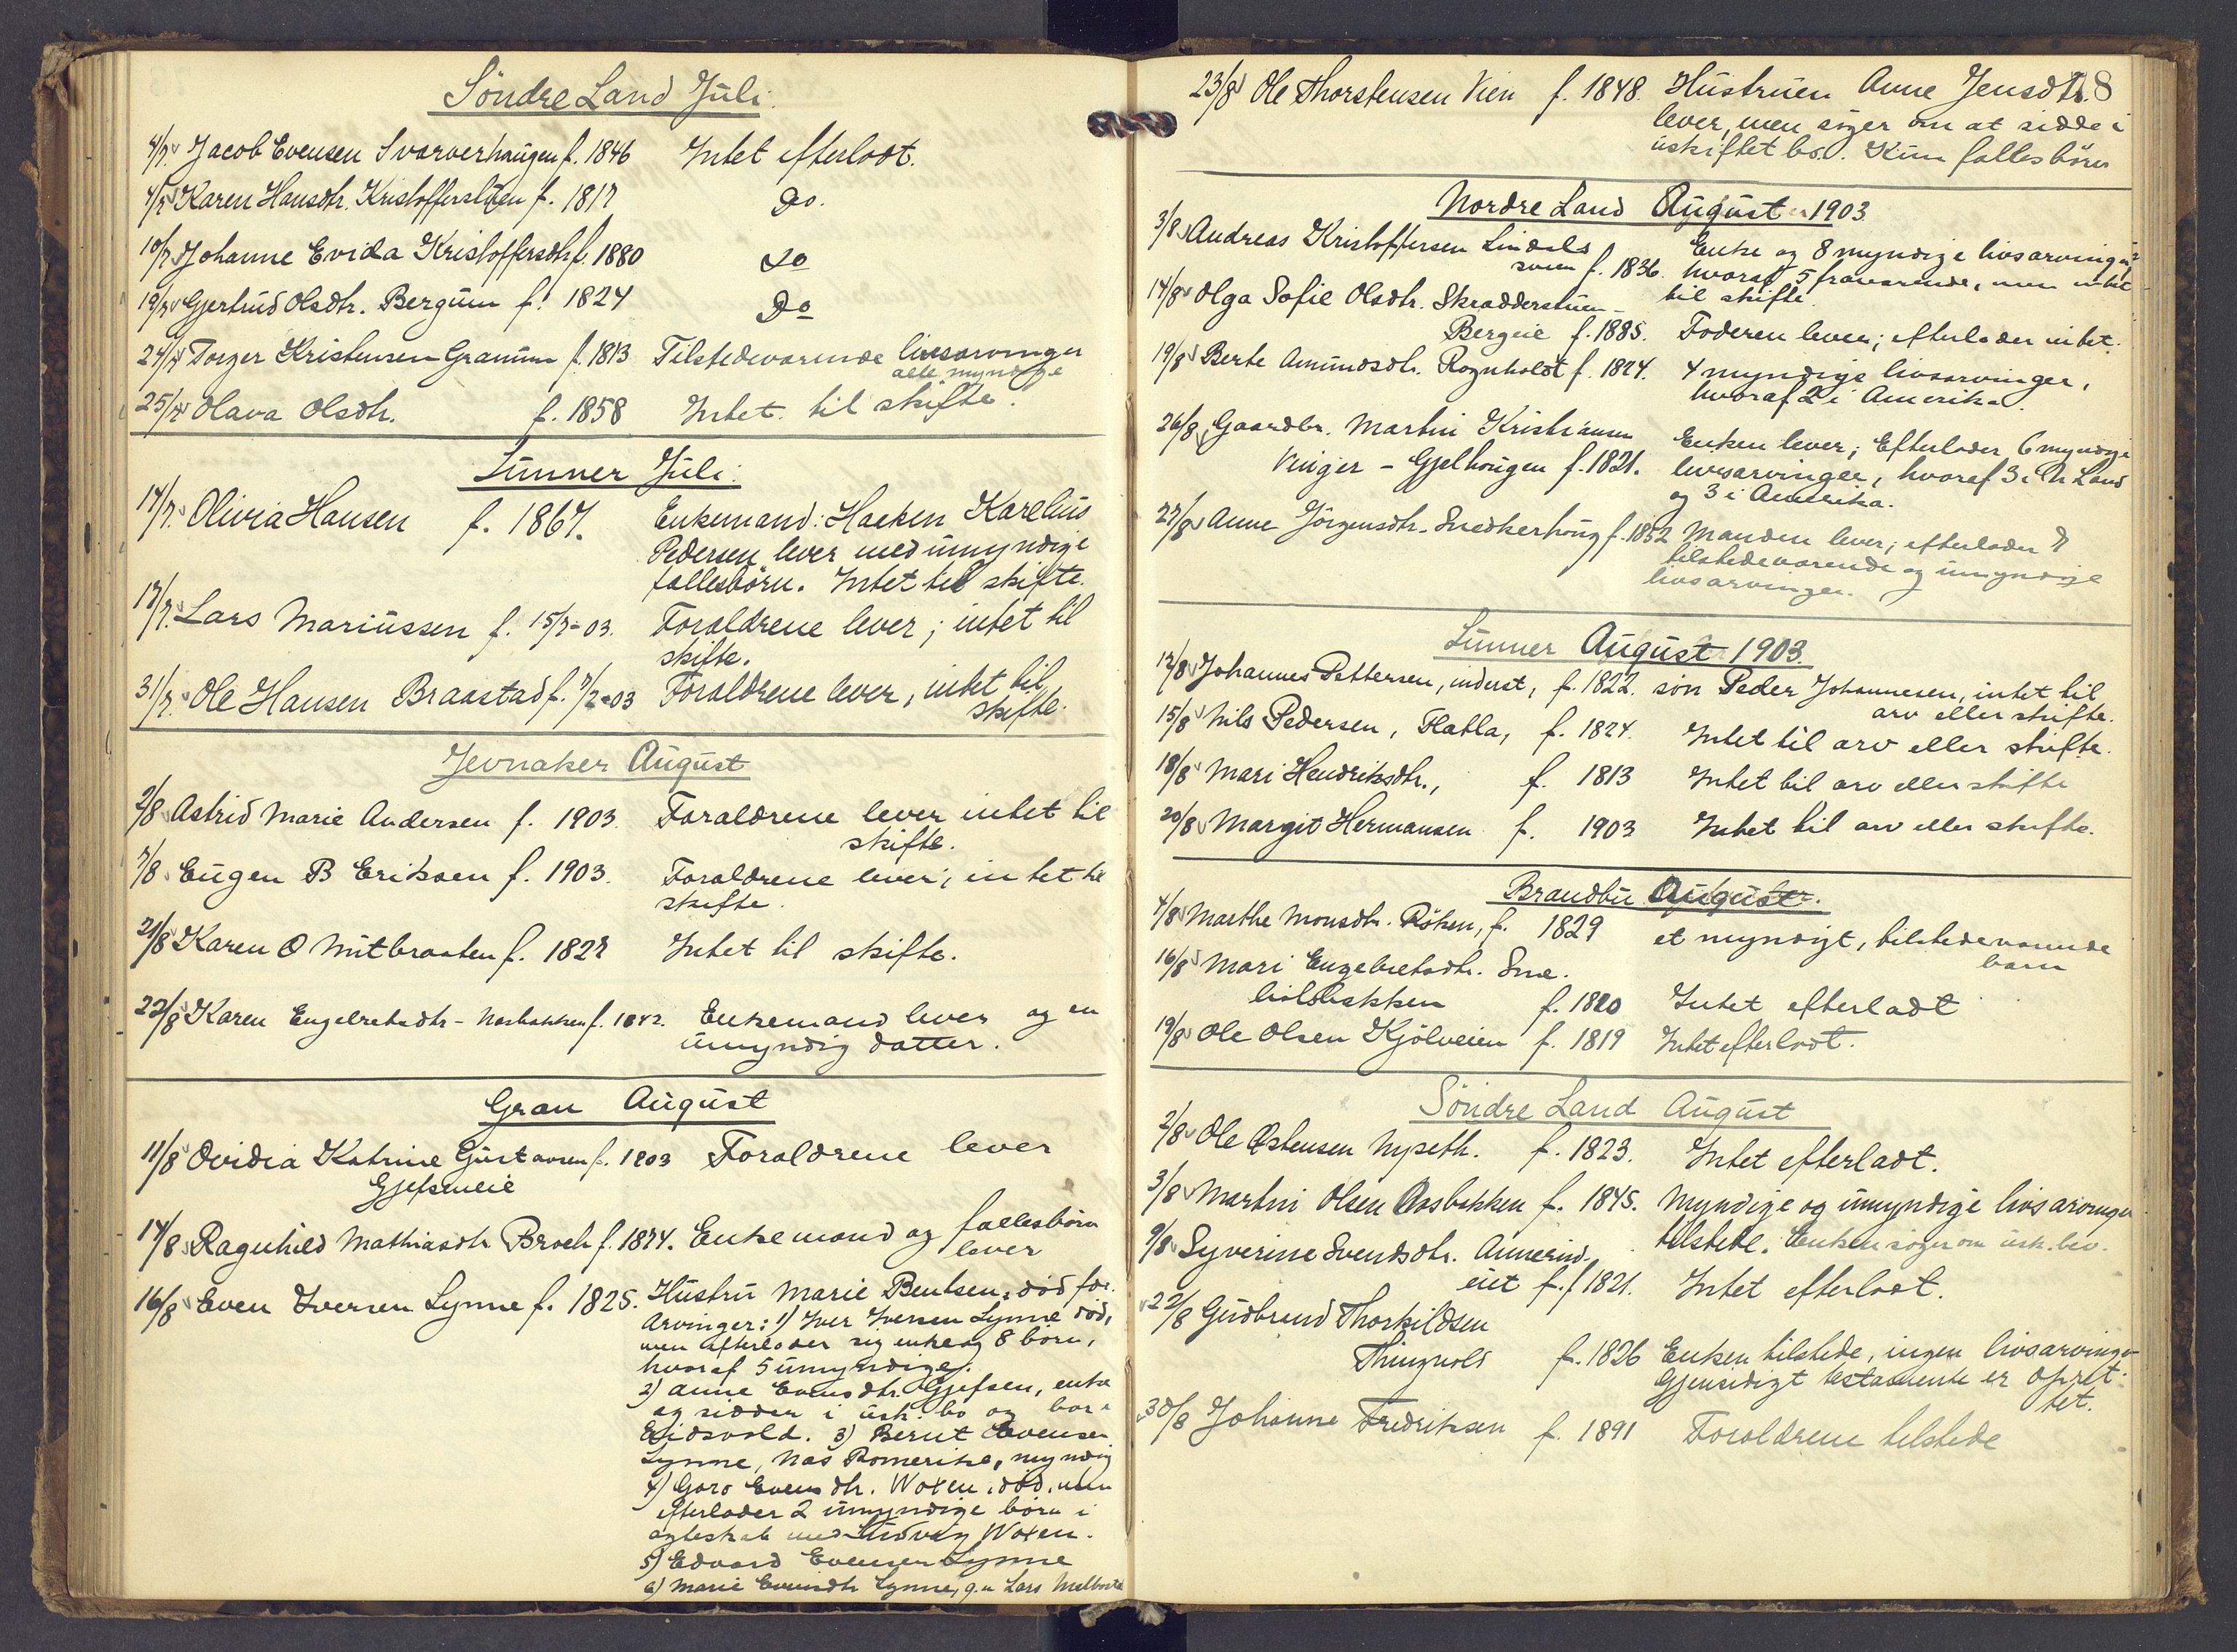 Söndre Land Juli.
4/7. Jacob Evensen Svarverhaugen f. 1846 Intet efterladt.
4/7 Karen Hansdtr. Kristoffersløkken f. 1817 Do.
10/7 Johanne Evida Kristoffersdtr f. 1880 Do
19/7 Gjertrud Olsdtr. Bergum f. 1824 Do
24/7 Torger Kristensen Granum f. 1813 Tilstedeværende livsarvinger
alle myndige
25/7 Olava Olsdtr. f. 1858 Intet til skifte.
Lunner Juli.
14/7. Olivia Hansen f. 1867. Enkemand: Haaken Karelius
Pedersen lever med umyndige
fællesbörn. Intet til skifte.
17/7. Lars Mariussen f. 15/7-03. Forældrene lever; intet til
skifte.
31/7. Ole Hansen Braastad f. 7/2-03 Forældrene lever, intet til
skifte.
Jevnaker August
2/8 Astrid Marie Andersen f. 1903. Forældrene lever intet til
skifte.
7/8 Eugen B Eriksen f. 1903. Forældrene lever; intet til
skifte.
21/8 Karen O Mutbraaten f. 1827 Intet til skifte.
22/8 Karen Engebretsdtr - Næsbakken f. 1842. Enkemand lever og en
umyndig datter.
Gran August
11/8 Ovidia Katrine Gustavsen f. 1903 Forældrene lever
Gjefseneie
14/8 Ragnhild Mathiasdtr Broch f. 1874. Enkemand og fællesbörn
lever
16/8 Even Iversen Lynne f. 1825. Hustru Marie Bentsen, död för.
Arvinger: 1) Iver Iversen Lynne död,
men efterlader sig enke og 8 börn,
hvoraf 5 umyndige.
2) Anne Evensdtr. Gjefsen, enke
og sidder i usk. bo og bor i
Eidsvold. 3) Bernt Evensen
Lynne, Næs Romerike, myndig
4) Goro Evensdtr. Woxen, död, men
efterlader 2 umyndige börn i
ægteskab med Ludvig Woxen.
5) Edvard Evensen Lynne
6) Marie Evensdtr Lynne, g.m Lars
23/8 Ole Thorstensen Vien f. 1848. Hustruen Anne Jensdtr. 8
lever, men söger om at sidde i
uskiftet bo. Kun fælles börn
Nordre Land August 1903
3/8 Andreas Kristoffersen Lindals
sveen f. 1836. Enke og 8 myndige livsarvinger
hvoraf 5 fraværende, men intet
til skifte.
14/8 Olga Sofie Olsdtr. Skrædderstuen -
Bergeie f. 1885. Faderen lever; efterlader intet.
19/8 Berte Amundsdtr. Rognholdt f. 1824. 4 myndige livsarvinger,
hvoraf 2 i Amerika.
26/8 Gaardbr. Martin Kristiansen
Vinger - Gjelhougen f. 1821. Enken lever; Efterlader 6 myndige
livsarvinger, hvoraf 3 i N Land
og 3 i Amerika.
27/8 Anne Jörgensdtr. Snedkerhoug f. 1852 Manden lever; efterlader 7
tilstedeværende og umyndige
livsarvinger.
Lunner August 1903.
12/8 Johannes Pettersen, inderst, f. 1822. sön Peder Johannesen, intet til
arv eller skifte.
15/8 Nils Pedersen, Flatla, f. 1824. Intet til arv eller skifte.
18/8 Mari Hendriksdtr., f. 1813 Intet til arv eller skifte
20/8 Margit Hermansen f. 1903 Intet til arv eller skifte.
Brandbu August.
4/8 Marthe Monsdtr. Röken, f. 1829 et myndigt, tilstedeværende
barn
16/8 Mari Engebretsdtr. Sme.
f. 1820 Intet efterladt
19/8 Ole Olsen Kjölveien f. 1819 Intet efterladt.
Söndre Land August
2/8 Ole Østensen Nyseth. f. 1823. Intet efterladt.
3/8 Martin Olsen Aasbakken f. 1845. Myndige og umyndige livsarvinger
tilstede. Enken söger om usk. bev.
9/8 Syverine Svendsdtr. Annerud
eiet f. 1821. Intet efterladt.
22/8 Gudbrand Thorkildsen
Thingvold f. 1826 Enken tilstede, ingen livsarvinger
Gjensidigt testamente er opret-
tet.
30/8 Johanne Fredriksen f. 1891 Forældrene tilstede